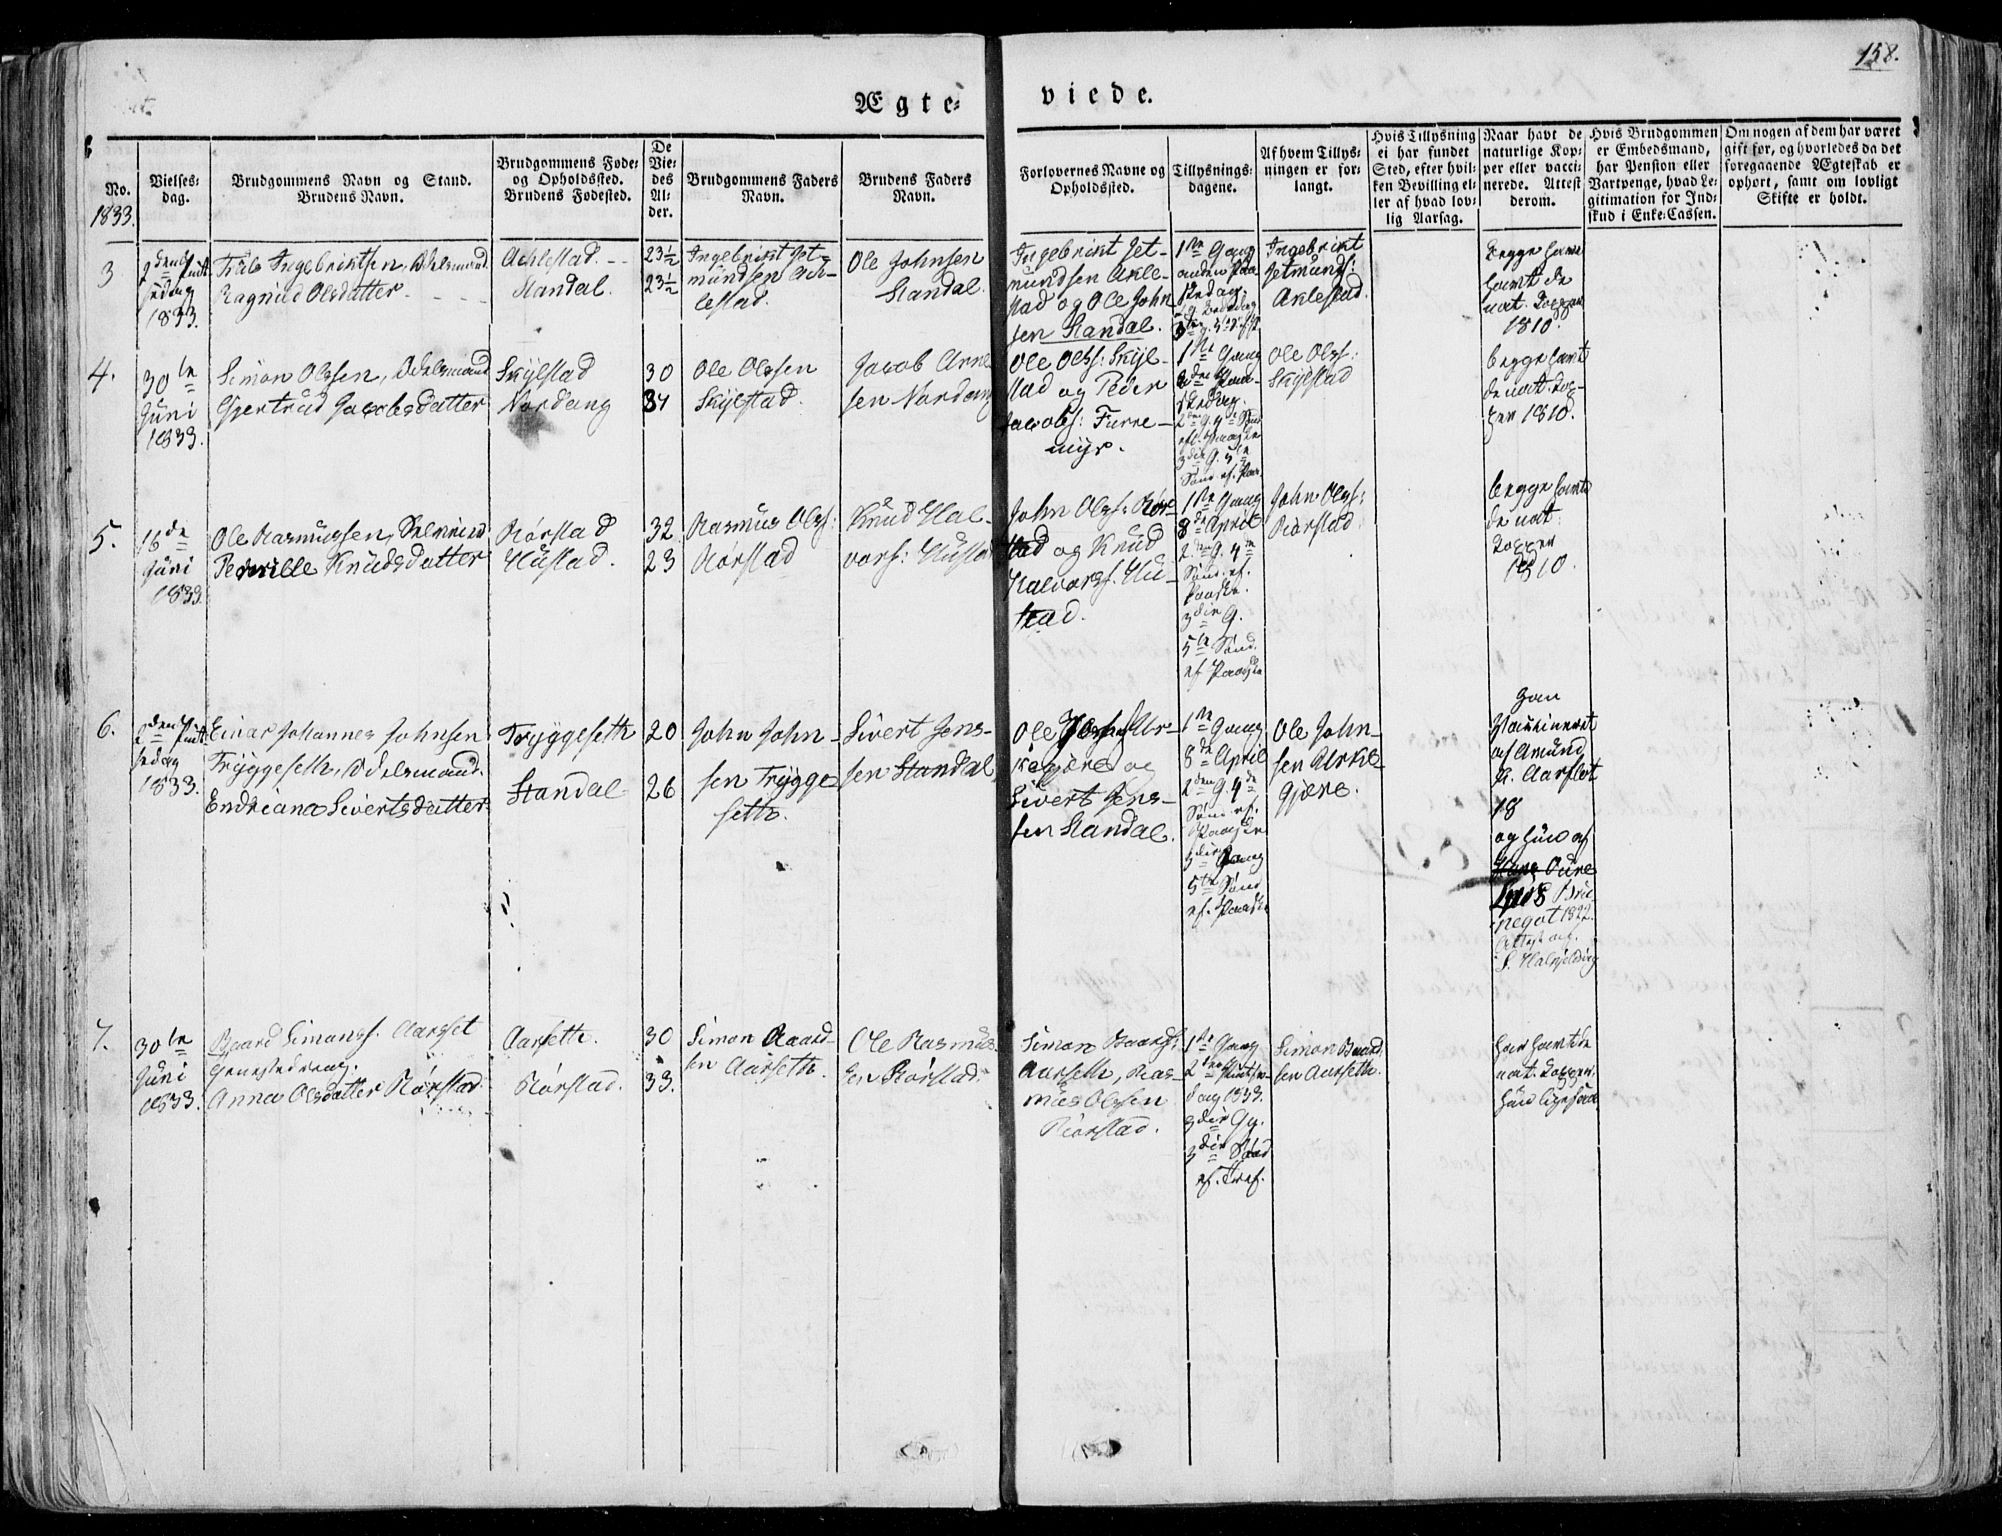 158.
Ægte-
viede.
No.
1833.
Vielses-
dag.
Brudgommens Navn og Stand.
Brudens Navn.
Brudgommens Føde-
og Opholdssted.
Brudens Fødested.
De
Vie-
des
Al-
der.
Brudgommens Faders
Navn.
Brudens Faders
Navn.
Forlovernes Navne og
Opholdssted.
Tillysnings-
dagene.
Af hvem Tillys-
ningen er for-
langt.
Hvis Tillysning
ei har fundet
Sted, efter hvil-
ken Bevilling el-
ler af hvad lov-
lig Aarsag.
Naar havt de
naturlige Kop-
per eller vacci-
nerede. Attest
derom.
Hvis Brudgommen
er Embedsmand,
har Pension eller
Vartpenge, hvad Le-
gitimation for Ind-
skud i Enke-Cassen.
Om nogen af dem har været
gift før, og hvorledes da det
foregaaende Ægteskab er
ophørt, samt om lovligt
Skifte er holdt.
3
2den Pint
sedag
1833.
Ingebriktsen, Odelsmand
Ragnild Olsdatter
Aklestad.
Standal.
23½
23½
Ingebrikt Jet-
mundsen Ak-
lestad.
Ole Johnsen
Standal.
Ingebrikt Jet-
mundsen Akle-
stad og Ole John
sen Standal.
1ste Gang
anden Paa-
skedag.
Ingebrikt
Jetmunds:
Aklestad.
Begge have
havt de
nat. Kopper
1810.
4.
30te
Juni
1833.
Simon Olssen, Odelsmand
Gjertrud Jacobsdatter
Skylstad
Nordang
30
34
Ole Olssen
Skylstad.
Jacob Arne
sen Nordang
Ole Olss: Skyl-
stad og Peder
Jacobs: Furre-
myr.
1ste Gang
2den Paa-
skedag.
2den G. 4de Sønd
ef. Paaske
3die G. 5te
Sønd. ef. Paa.
Ole Olss:
Skylstad
begge havt
de nat. Kop-
per 1810.
5.
16de
Juni
1833
Ole Rasmussen, Selveier
Pernille Knudsdatter
Rørstad
Hustad.
32
23
Rasmus Olss:
Rørstad
Knud Hal-
vors: Hustad
John Olss: Rør-
stad og Knud
Halvorss. Hu-
stad.
1ste Gang
8de April
2den G. 4de
Sønd. ef.
Paaske.
3die G.
5te Sønd.
ef Paaske
John Olss:
Rørstad.
begge havt
de nat.
Kopper
1810.
6.
2den Pint
sedag
1833.
Einar Johannes Johnsen
Tryggeseth, Odelsmand.
Endreiana Sivertsdatter
Tryggeseth
Standal
20
26
John John-
sen Trygge
seth.
Sivert Jens-
sen Standal
Ole
og
Sivert Jens-
sen Standal.
1ste Gang
8de April
2den G. 4de
Sønd. ef.
Paaske
3die Gang
5te Sønd
ef. Paaske
Ole John-
sen Urke-
gjære.
Han
Vaccineret
af Amund
K. Aarflot
18
og hun af
Hans Oure
1822.
Attest af
7.
30te
Juni
1833.
Baard Simonss. Aarset
Anna Olsdatter Rørstad.
Aarseth.
Rørstad.
30
33.
Simon Baard-
sen Aarseth.
Ole Rasmus
sen Rørstad.
Simon Baards:
Aarseth, Ras-
mus Olssen
Rørstad.
1ste Gang
2den Pintse-
dag 1833.
3die Gg.
3die Sønd
ef. Tref.
Simon Baard
sen Aarseth.
han havt de
nat. Kopper.
hun ligesaa